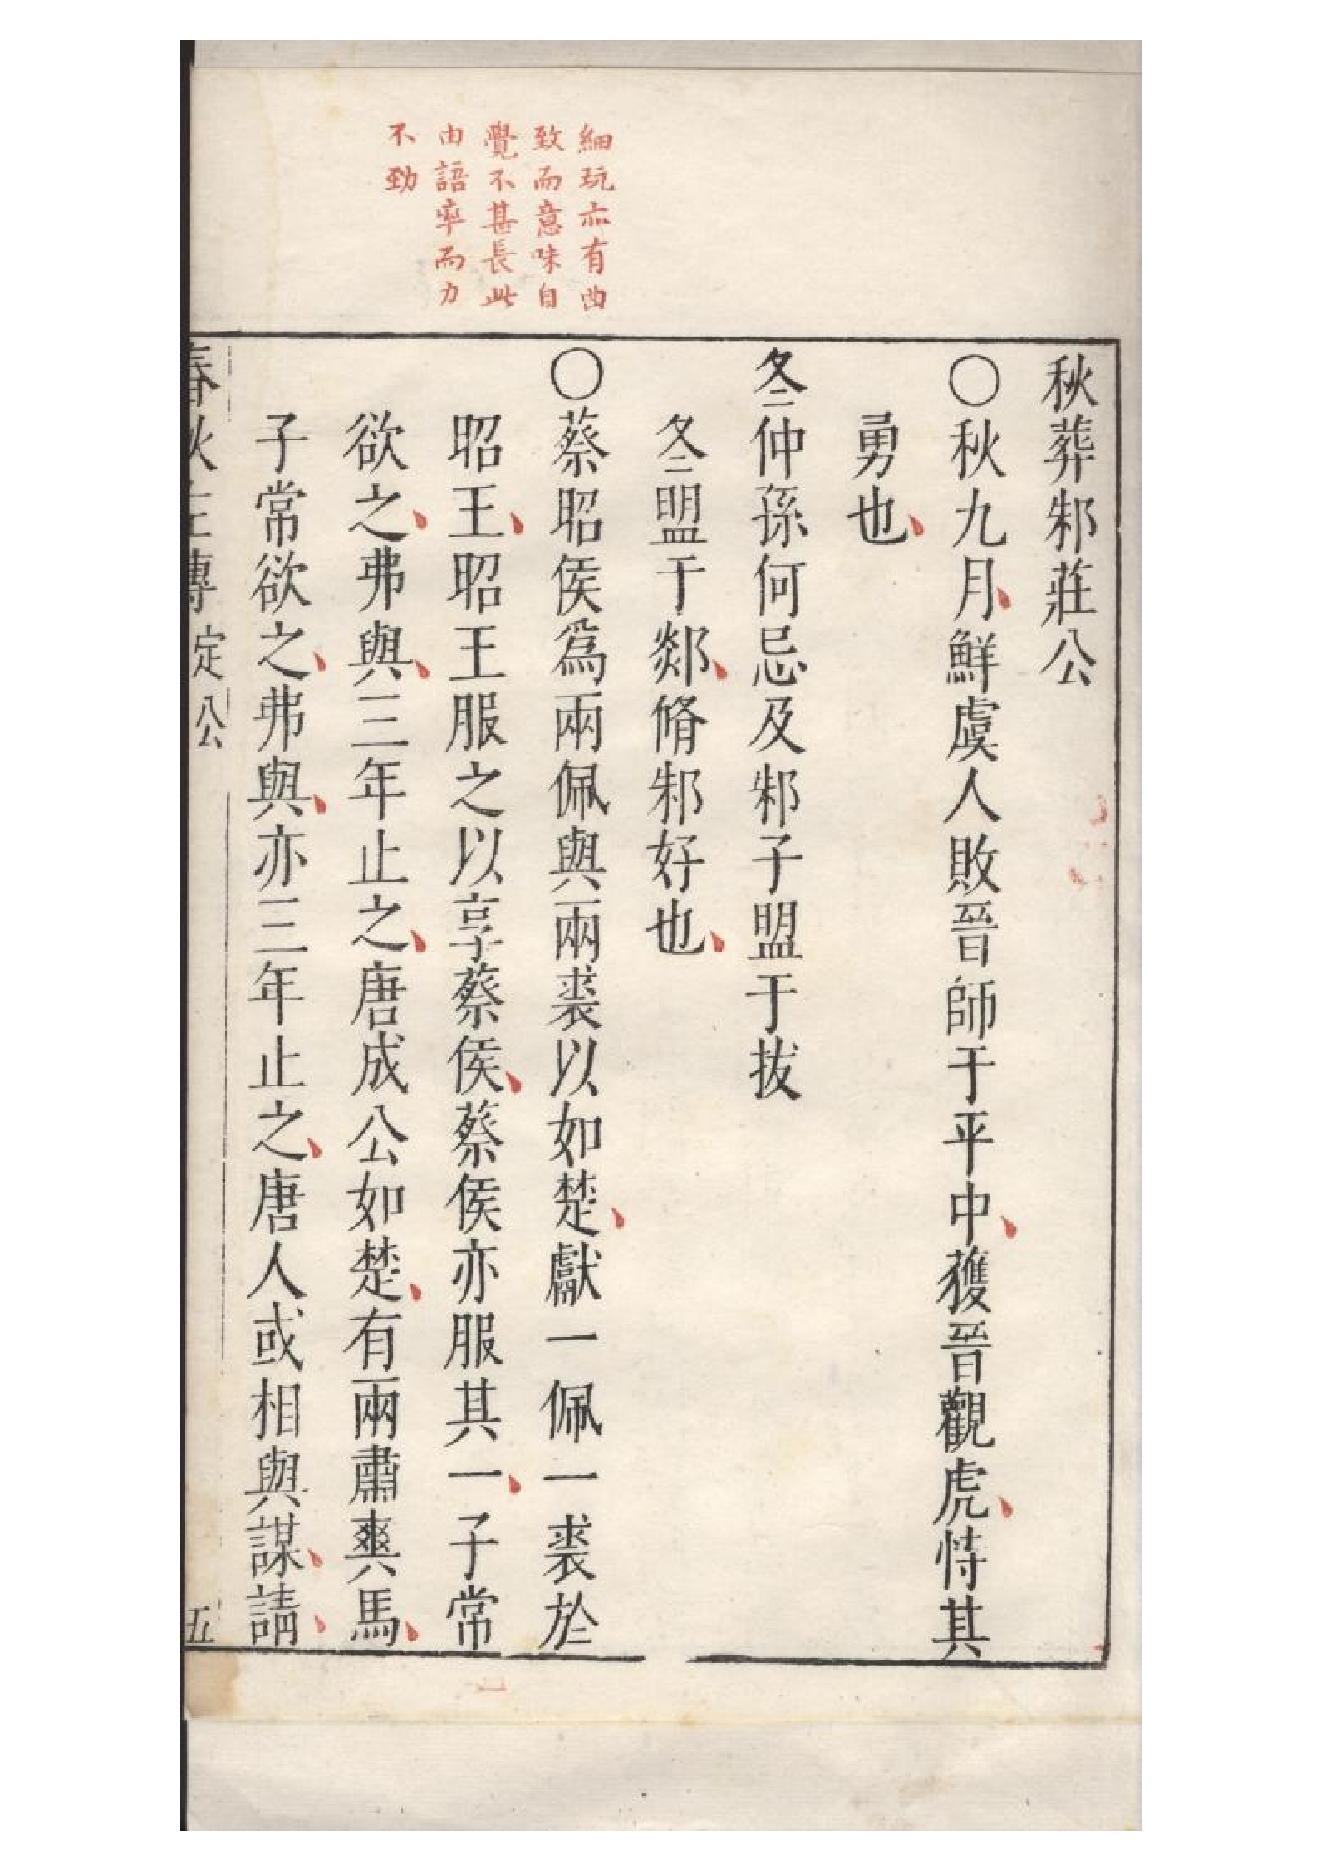 細玩亦有曲
致而意味自
覺不甚長此
由語率而力
不勁
秋葬邾莊公
〇秋九月鮮虞人敗晉師于平中獲晉觀虎恃其
勇也
冬仲孫何忌及邾子盟于拔
冬盟于郯脩邾好也
〇蔡昭侯爲兩佩與兩裘以如楚獻一佩一裘於
昭王昭王服之以享蔡侯蔡侯亦服其一子常
欲之弗與三年止之唐成公如楚有兩肅爽馬
子常欲之弗與亦三年止之唐人或相與謀請
春秋左傳 定公 五